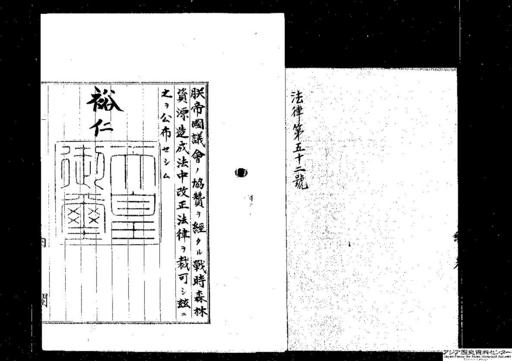 法律第五十二號
朕帝國議會ノ協贊ヲ經タル戰時森林
資源造成法中改正法律ヲ裁可シ茲ニ
之ヲ公布セシム
裕仁
天皇
御璽
内閣
アジア歴史資料センター